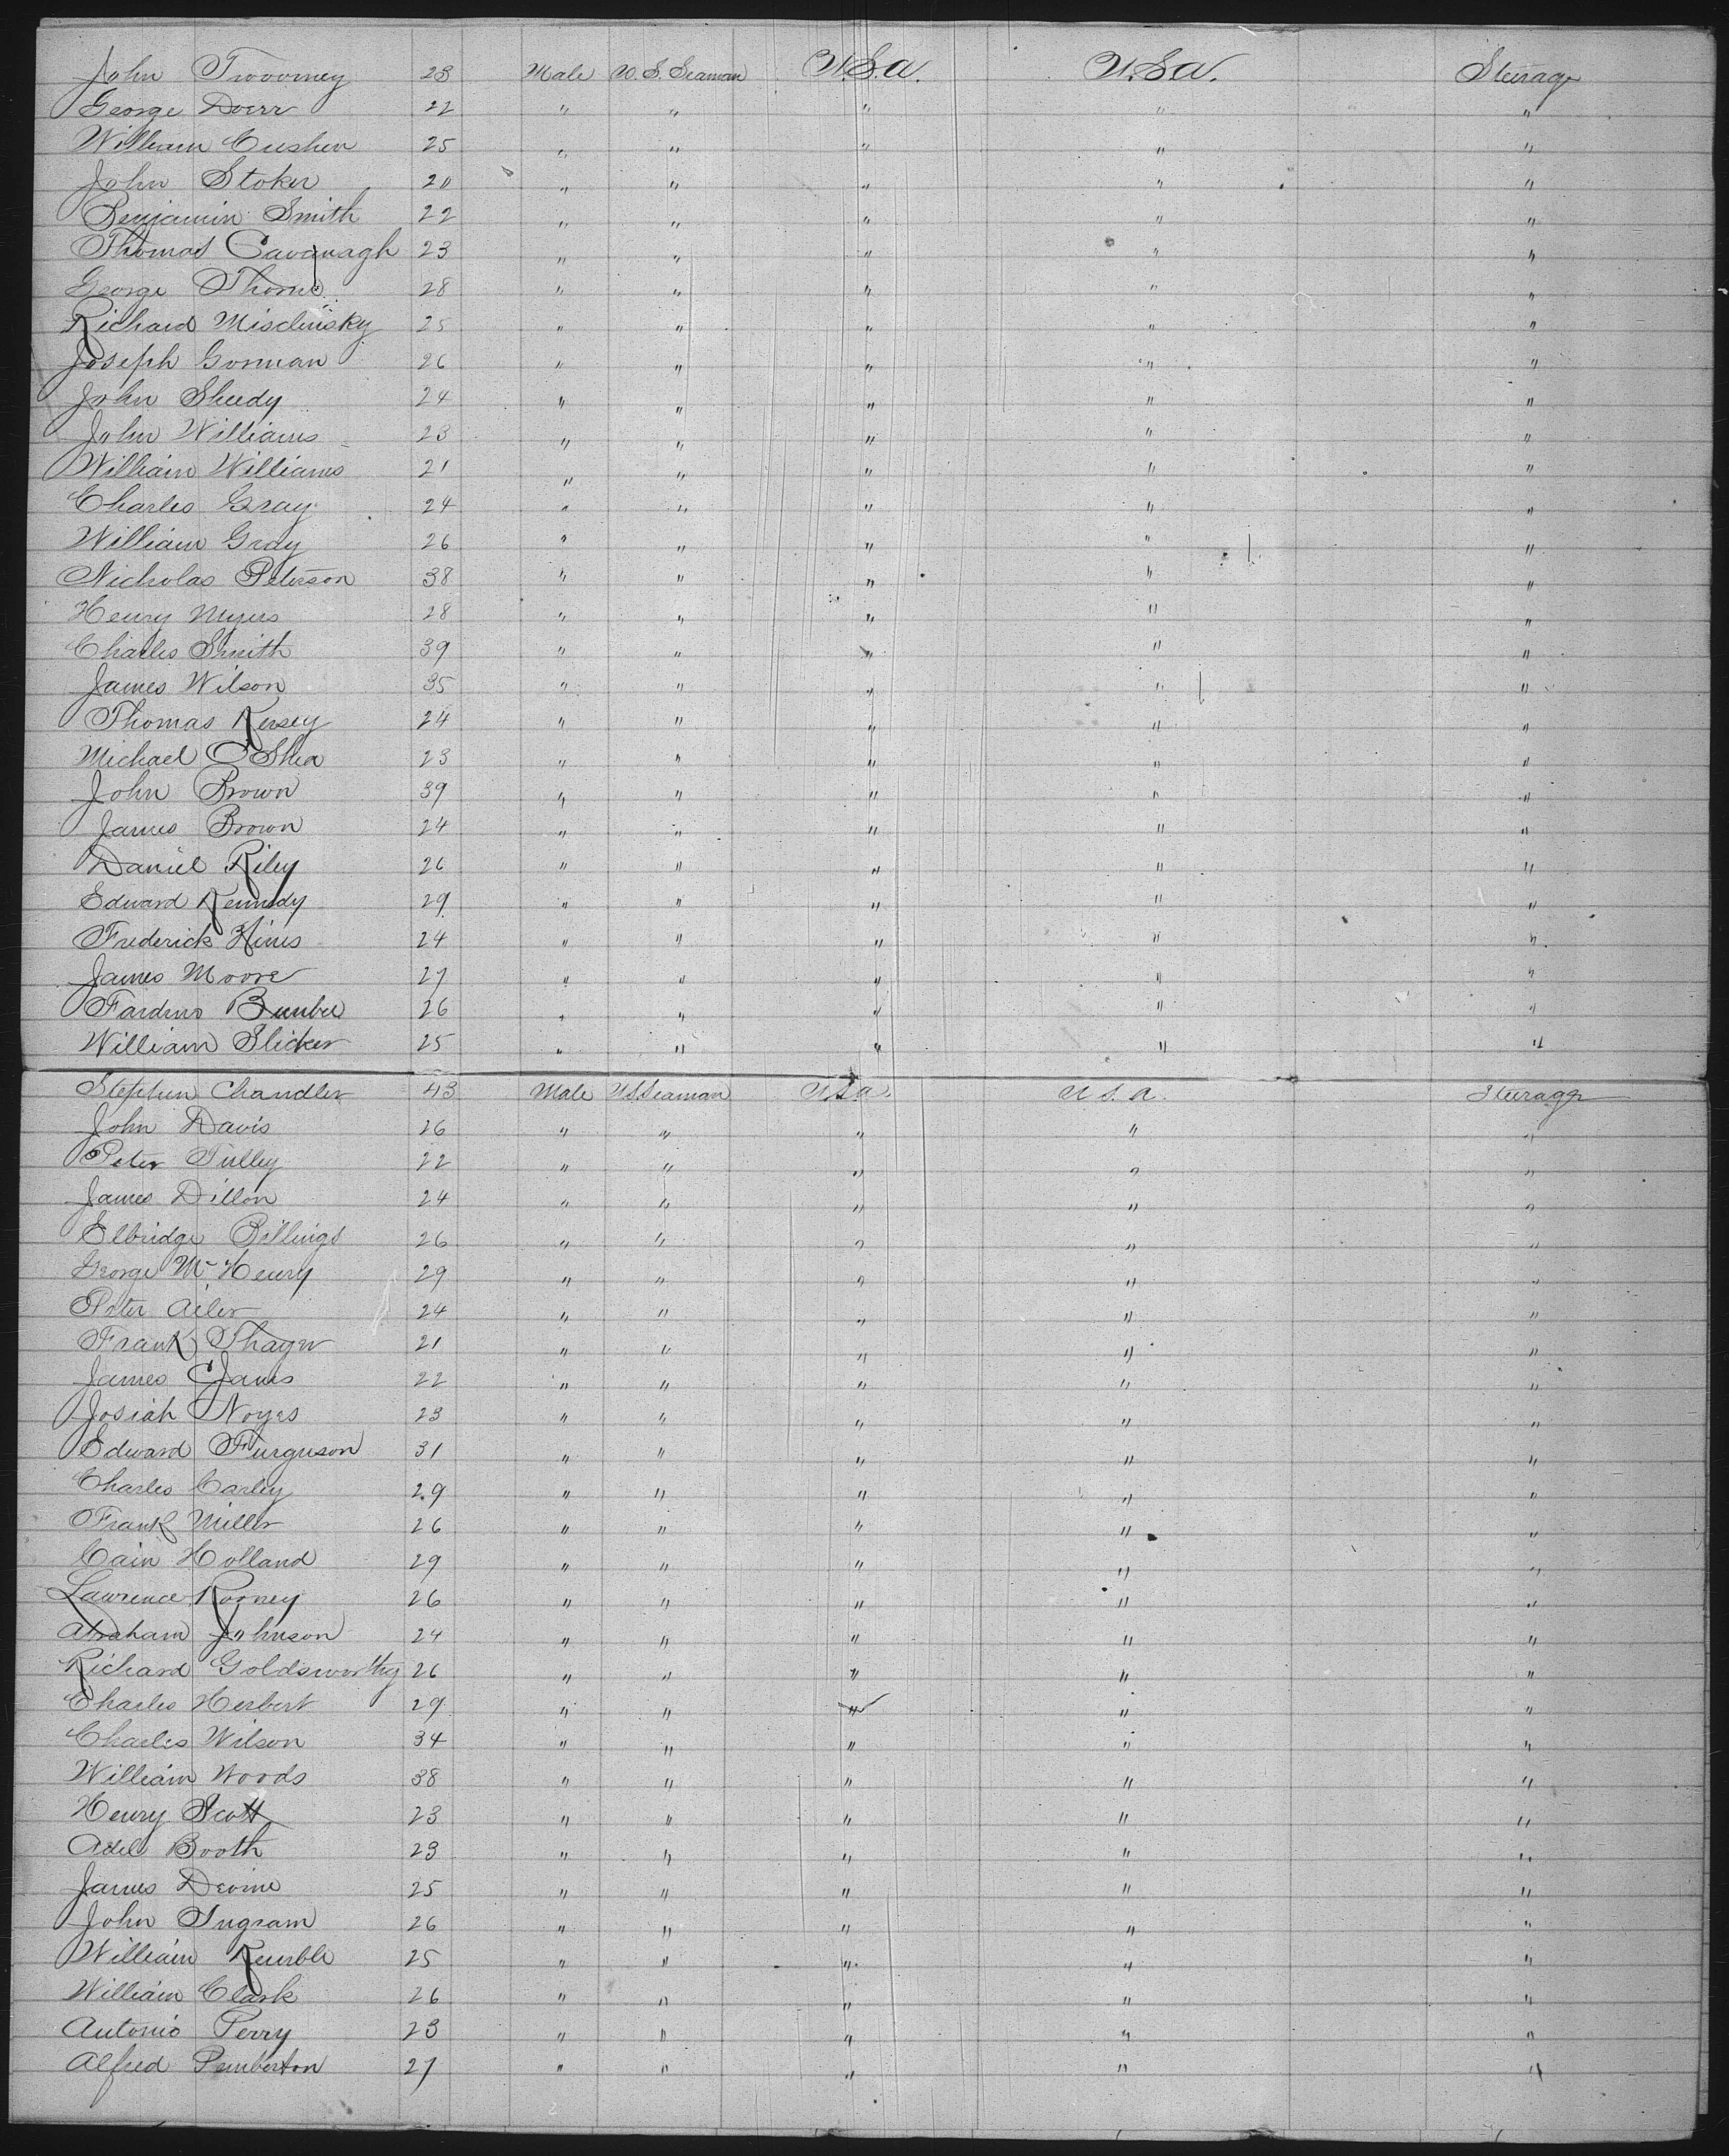 John Twoomey 23 Male U.S. Seaman U.S.A. U.S.A. Steerage
George Doerr 22 " " " " "
William Cushen 25 " " " " "
John Stoker 20 " " " " "
Benjamin Smith 22 " " " " "
Thomas Cavanagh 23 " " " " "
George Thorne 28 " " " " "
Richard 25 " " " " "
Joseph Gorman 26 " " " " "
John Sheedy 24 " " " " "
John Williams 23 " " " " "
William Williams 21 " " " " "
Charles Gray 24 " " " " "
William Gray 26 " " " " "
Nicholas Peterson 38 " " " " "
Henry Myers 28 " " " " "
Charles Smith 39 " " " " "
James Wilson 35 " " " " "
Thomas Kersey 24 " " " " "
Michael O'Shea 23 " " " " "
John Brown 39 " " " " "
James Brown 24 " " " " "
Daniel Riley 26 " " " " "
Edward Kennedy 29 " " " " "
Frederick Hines 24 " " " " "
James Moore 27 " " " " "
26 " " " " "
William Slicker 25 " " " " "
Stephen Chandler 43 Male U.S. Seaman U.S.A. U.S.A. Steerage
John Davis 26 " " " " "
Peter Tulley 22 " " " " "
James Dillon 24 " " " " "
Elbridge Billings 26 " " " " "
George McHenry 29 " " " " "
Peter Ailer 24 " " " " "
Frank Thayer 21 " " " " "
James 22 " " " " "
Josiah Noyes 23 " " " " "
Edward Furguson 31 " " " " "
Charles Carley 29 " " " " "
Frank Miller 26 " " " " "
Cain Holland 29 " " " " "
Lawrence Rooney 26 " " " " "
Abraham Johnson 24 " " " " "
Richard Goldsworthy 26 " " " " "
Charles Herbert 29 " " " " "
Charles Wilson 34 " " " " "
William Woods 38 " " " " "
Henry Scott 23 " " " " "
Adel Booth 23 " " " " "
James Devine 25 " " " " "
John Ingram 26 " " " " "
William Kemble 25 " " " " "
William Clark 26 " " " " "
Antonio Perry 23 " " " " "
Alfred Pemberton 27 " " " " "